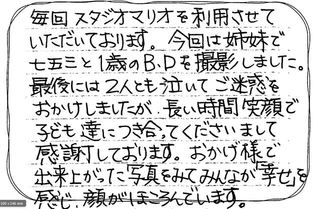 毎回スタジオマリオを利用させて
いただいております。今回は姉妹で
七五三と1歳のB.Dを撮影しました。
最後には2人とも泣いてご迷惑を
おかけしましたが、長い時間笑顔で
子ども達につき合ってくださいまして
感謝しております。おかげ様で
出来上がった写真をみてみんなが「幸せ」を
感じ、顔がほころんでいます。